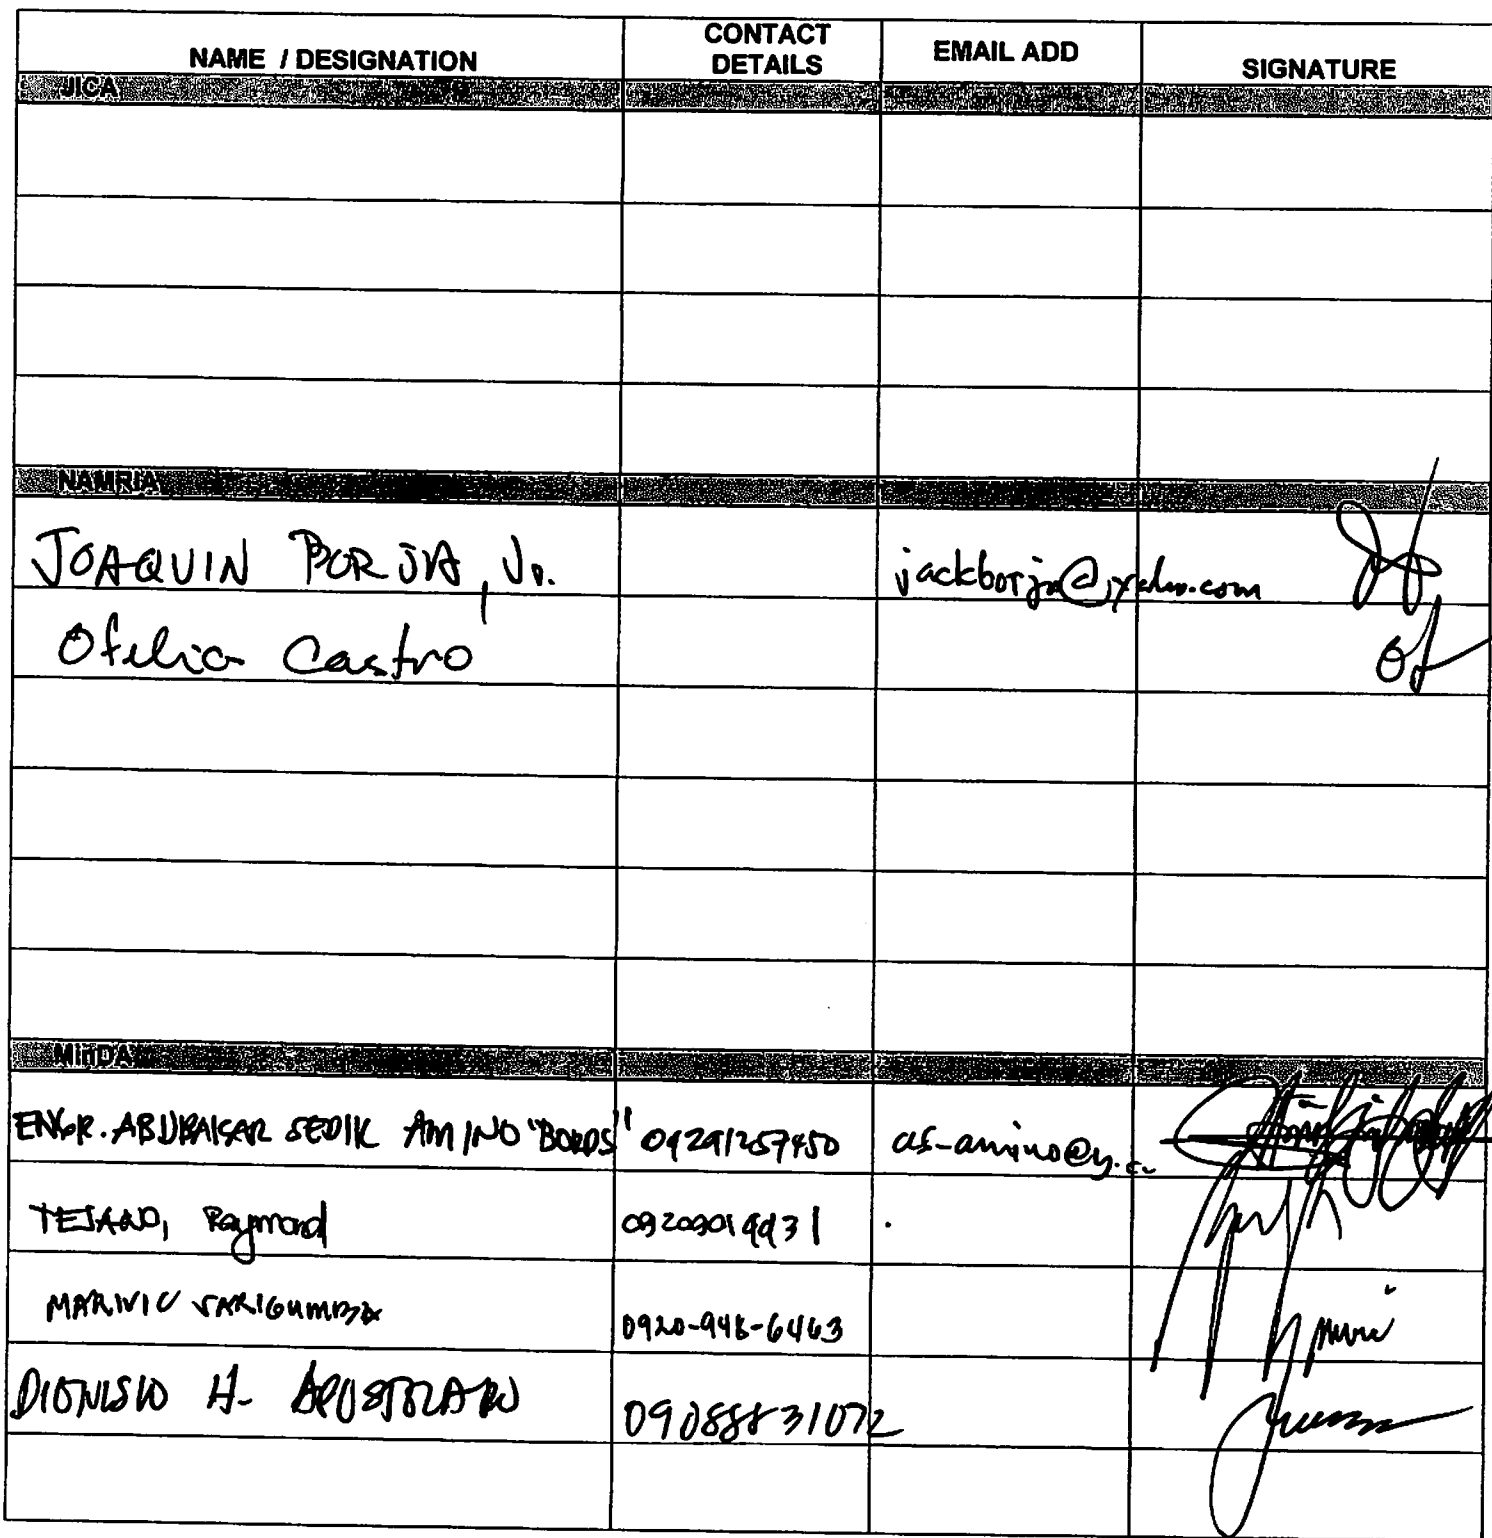 NAME / DESIGNATION CONTACT DETAILS EMAIL ADD SIGNATURE
JICA
NAMRIA
JOAQUIN BORJA, Jr. jackborja@yahoo.com
Ofelia Castro
MinDA
ENGR. ABUBAKAR SEDIK AMINO "BORDS" 09291257450
TEJANO, Raymond
MARIVIC SARIGUMBA 0920-948-6463
DIONISIO H. 09088831072